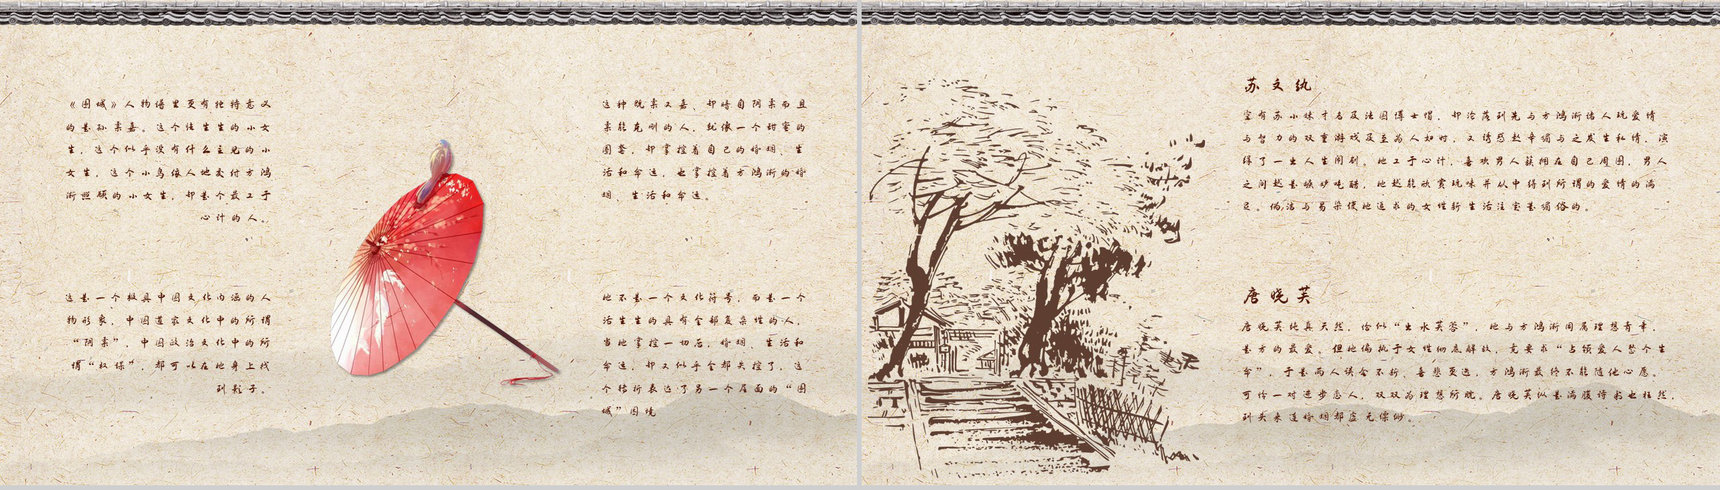 《围城》人物谱里更有独特意义
的是孙柔嘉。这个怯生生的小女
生，这个似乎没有什么主见的小
女生，这个小鸟依人地交付方鸿
渐照顾的小女生，却是个最工于
心计的人。
这是一个极具中国文化内涵的人
物形象，中国道家文化中的所谓
“阴柔”，中国政治文化中的所
谓“权谋”，都可以在她身上找
到影子。
这种既柔又嘉、却暗自阴柔而且
柔能克刚的人，就像一个甜蜜的
圈套，却掌控着自己的婚姻、生
活和命运，也掌控着方鸿渐的婚
姻、生活和命运。
她不是一个文化符号，而是一个
活生生的具有全部复杂性的人，
当她掌控一切后，婚姻、生活和
命运，却又似乎全都失控了，这
个转折表达了另一个层面的“围
城”困境
苏文纨
空有苏小妹才名及法国博士帽，却沦落到先与方鸿渐诸人玩爱情
与智力的双重游戏及至为人如时，又诱惑赵辛楣与之发生私情，演
绎了一出人生闹剧。她工于心计，喜欢男人簇拥在自己周围，男人
之间越是嫉妒吃醋，她越能欣赏玩味并从中得到所谓的爱情的满
足。俩,活与易染使她追求的女性新生活注定是庸俗的。
唐晓芙
唐晓芙纯真天然，恰似“出水芙蓉”，她与方鸿渐同属理想青年，
是方的最爱。但她偏执于女性彻底解放，竟要求“占领爱人整个生
命”，于是两人误会不断、喜悲更迭，方鸿渐最终不能随她心愿。
可怜一对进步恋人，双双为理想所耽。唐晓芙纵是满腹诗书也枉然，
到头来连婚姻都虚无缥缈。